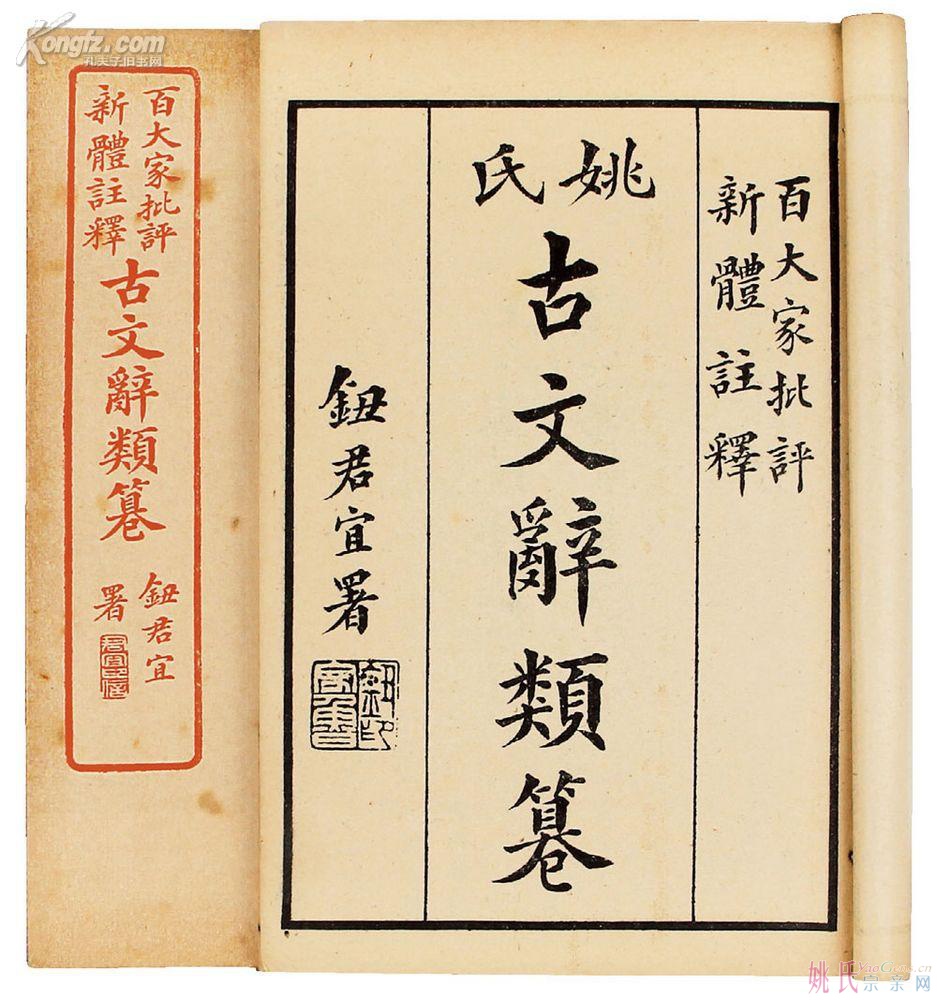 Kongfz.com
孔夫子旧书网
百大家批評
新體註釋
古文辭類篹
鈕君宜
署
百大家批評
新體註釋
姚氏
古文辭類篹
鈕君宜署
姚氏宗亲网